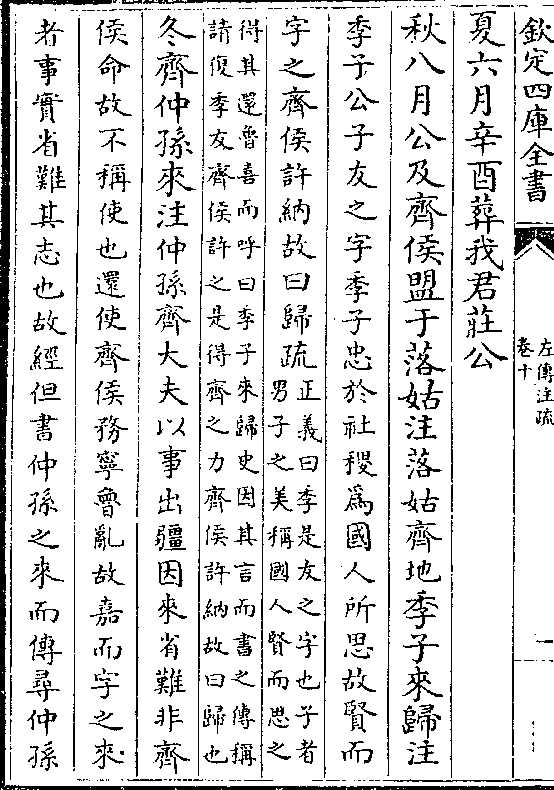 欽定四庫全書
左傳注疏
卷十
一
夏六月辛酉葬我君莊公
秋八月公及齊侯盟于落姑注落姑齊地季子來歸注
季子公子友之字季子忠於社稷爲國人所思故賢而
字之齊侯許納故曰歸疏正義曰季是友之字也子者
男子之美稱國人賢而思之
得其還魯喜而呼曰季子來歸史因其言而書之傳稱
請復季友齊侯許之是得齊之力齊侯許納故曰歸也
冬齊仲孫來注仲孫齊大夫以事出疆因來省難非齊
侯命故不稱使也還使齊侯務寧魯亂故嘉而字之來
者事實省難其志也故經但書仲孫之來而傳尋仲孫